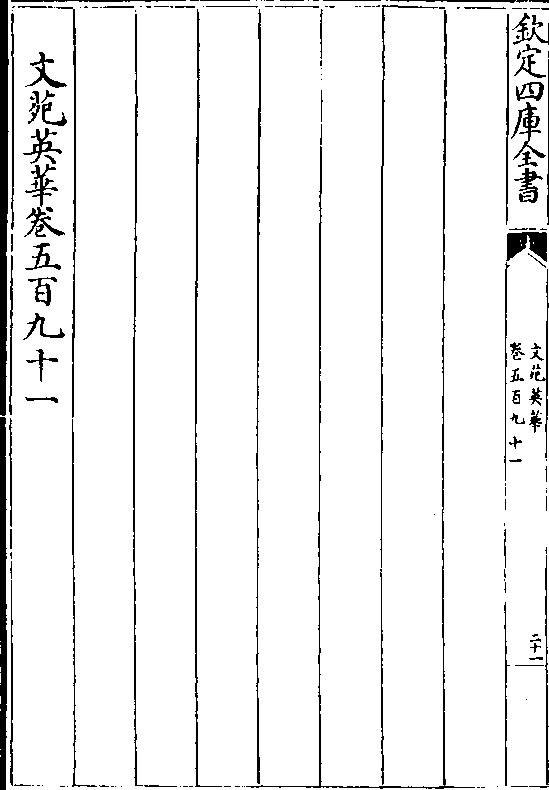 欽定四庫全書
文苑英華
卷五百九十一
二十一
文苑英華卷五百九十一